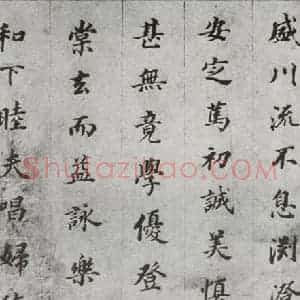 盛川流不息渊澄
安定篤初誠美慎
甚無竟學優登
棠去而益詠樂
和下睦夫唱婦